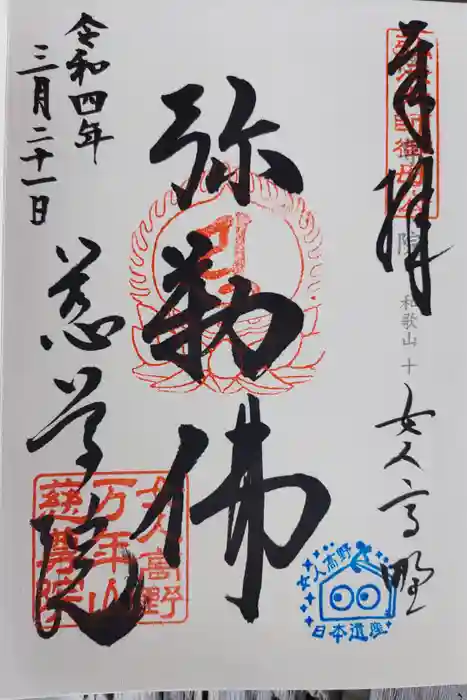 奉拝
女人高野
弥勒佛
令和四年
三月二十一日
慈尊院
和歌山 十
院
女人高野
万年山
慈尊院
女人高野
日本遺産